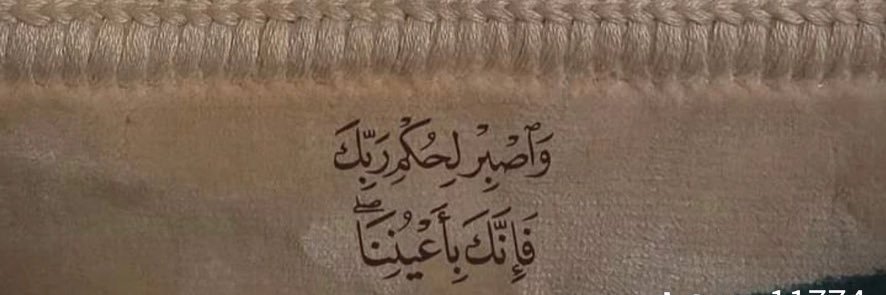 وَٱصْبِرْ لِحُكْمِ رَبِّكَ
فَإِنَّكَ بِأَعْيُنِنَا ۖ
11774